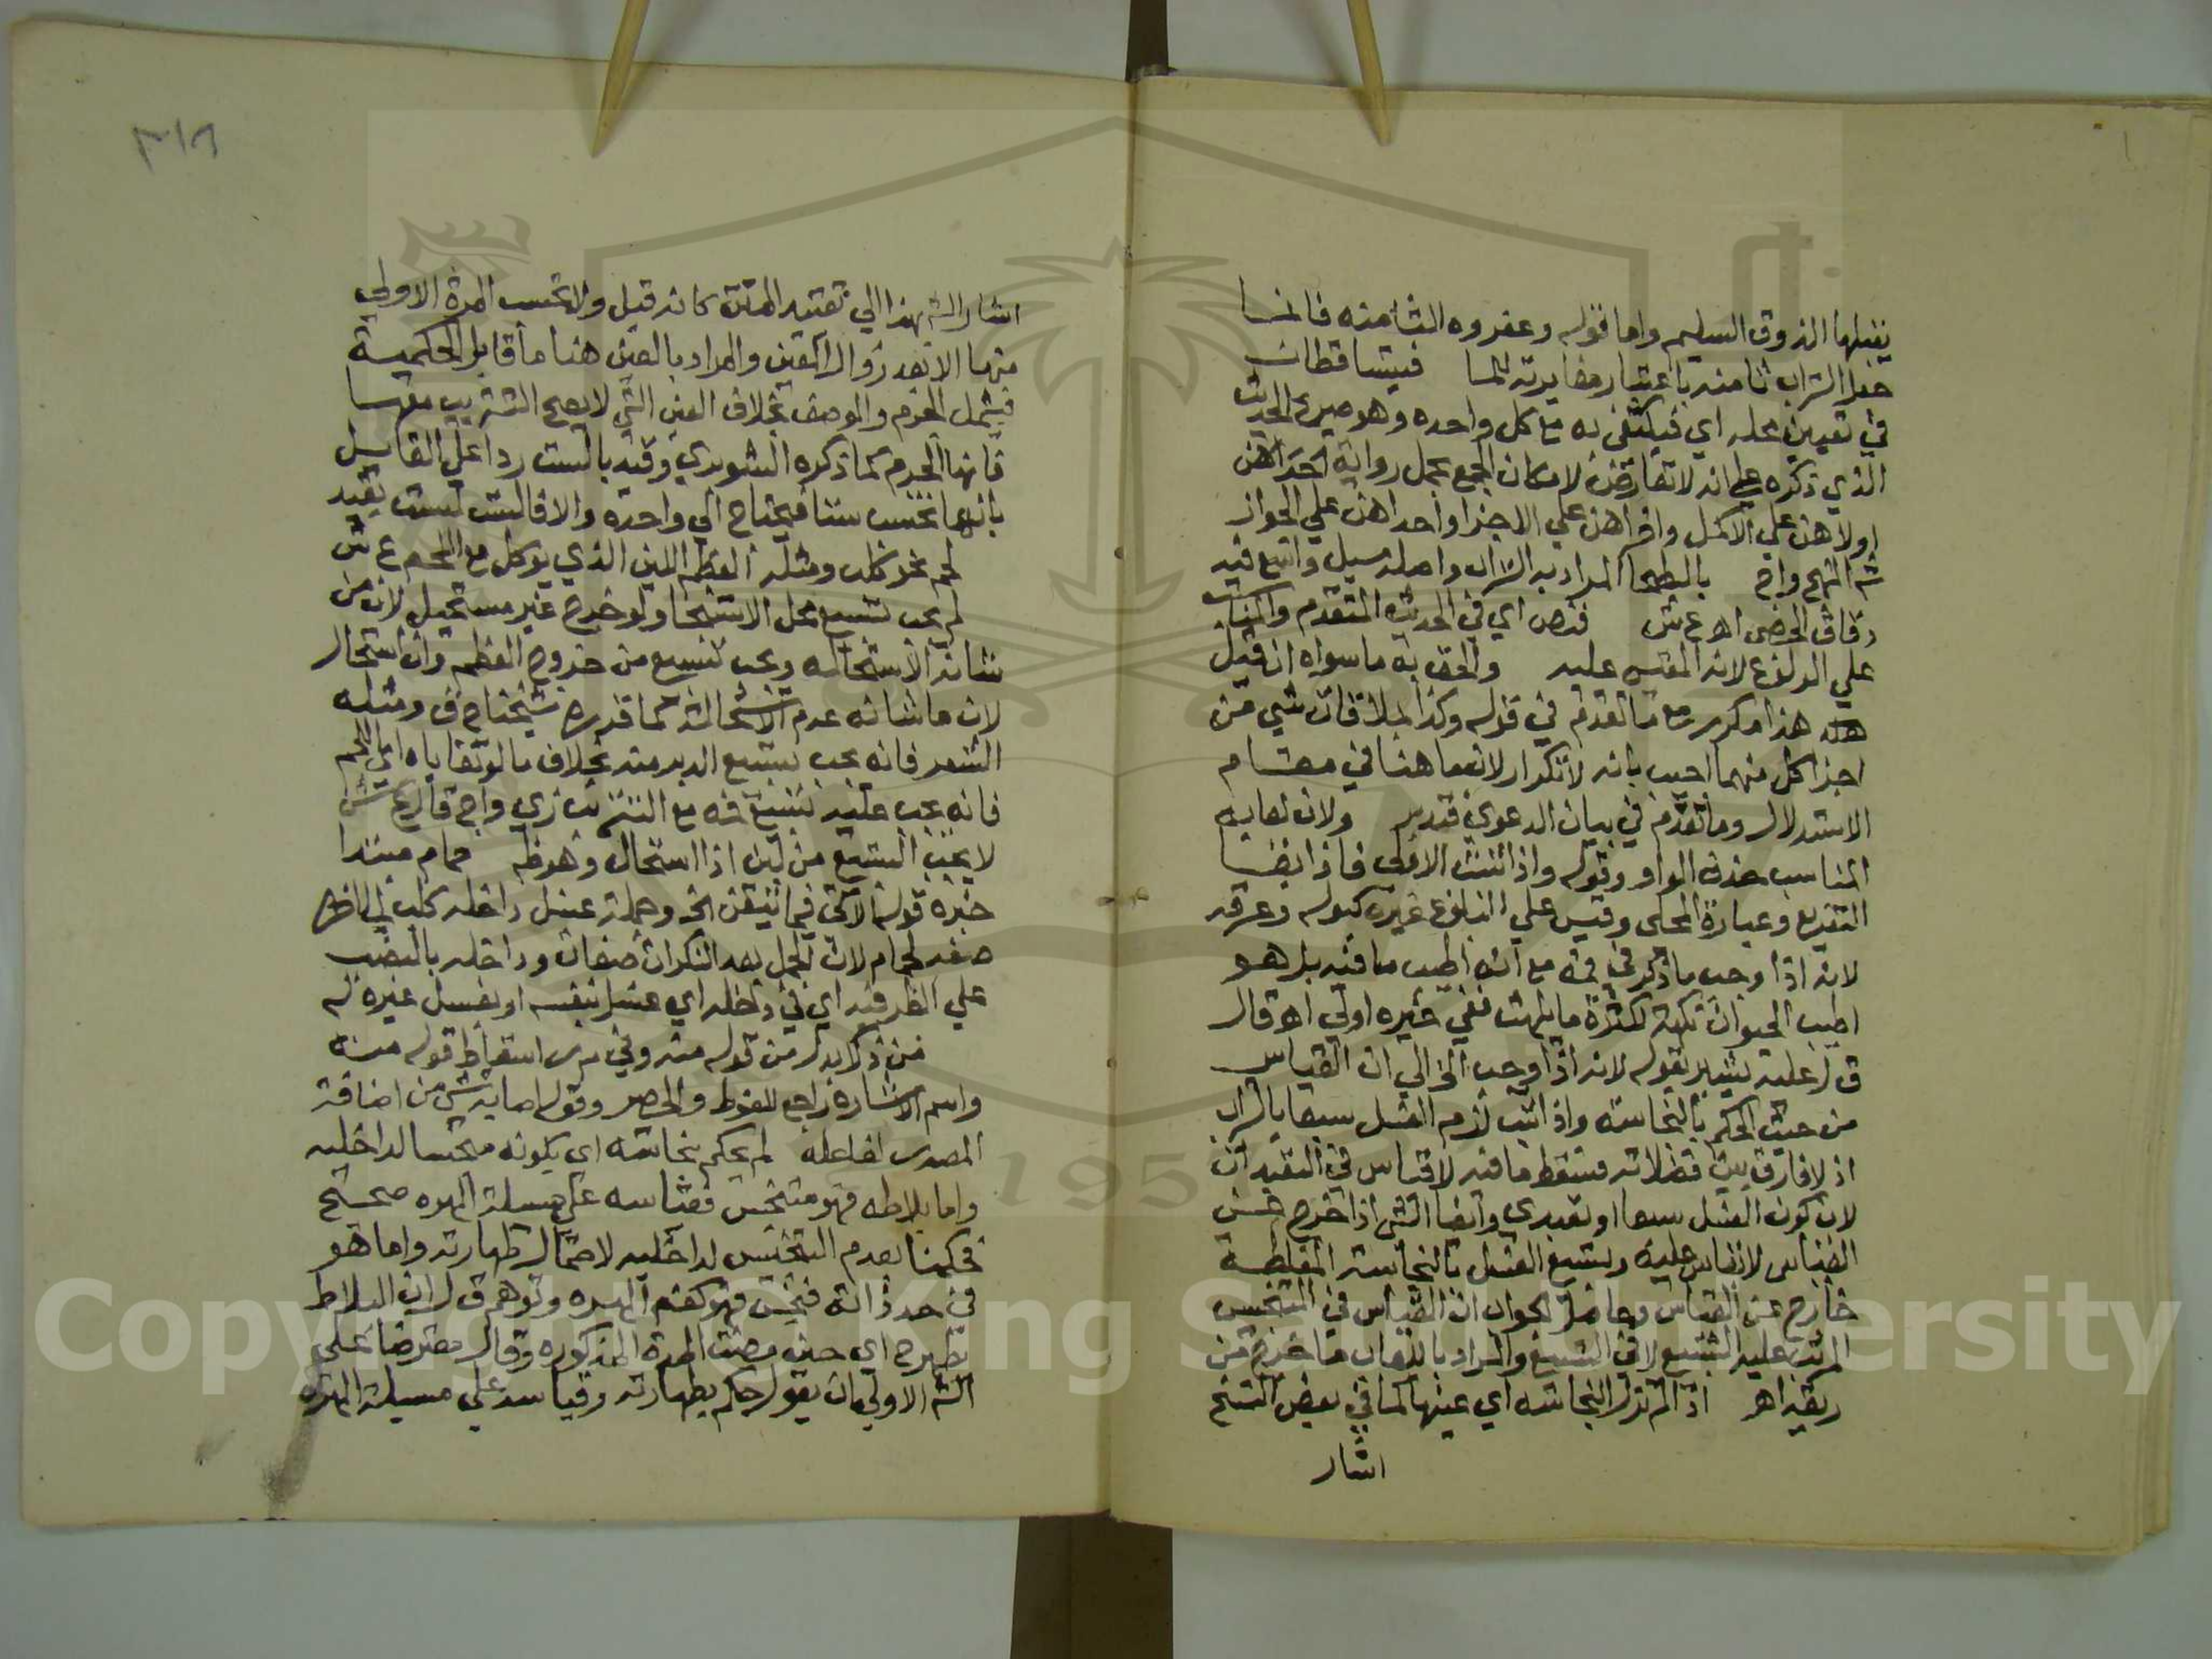 يقبلها الذوق السليم واما قوله وعفروه الثامنه فانما
جعل التراب ثامنه باعتبار مغايرته للما فيتساقطان
في تعيين محله اي فيكتفى به مع كل واحده وهو صريح الحديث
الذي ذكره علي انه لا تعارض لامكان الجمع بحمل رواية احداهن
اولاهن علي الاكمل واخراهن علي الاجزا واحداهن علي الجواز
بالبطحا المراد به التراب واصله مسيل واسع فيه
دقاق الحصى اهـ ع ش فنص اي في الحديث المتقدم
علي الولوغ لانه المقيس عليه والحق به ما سواه ان قيل
هذا مكرر مع ما تقدم في قوله وكذا بملاقات شي من
اجزا كل منهما اجيب بانه لا تكرار لانهما هنا في مقام
الاستدلال وما تقدم في بيان الدعوي فتدبر ولان لعابه
المناسب حذف الواو وقوله واذا ثبتت الاولى فاذا ايضا
التفريع وعبارة المحلى وقيس علي الولوغ غيره كبوله وعرقه
لانه اذا وجب ما ذكر في فمه مع انه اطيب ما فيه بل هو
اطيب الحيوان نكهة لكثرة ما يلهث ففي غيره اولي اهـ قال
ق ل عليه يشير بقوله لانه اذا وجب الخ الي ان القياس
من حيث الحكم بالنجاسة واذا ثبت لزم الغسل سبعا بالتراب
اذ لا فارق بين فضلاته فسقط ما فيه لا قياس في التعبد اي
لان كون الغسل سبعا او تعبدي وايضا الشي اذا خرج عن
القياس لا يقاس عليه وتسبيع الغسل بالنجاسة المغلظة
خارج عن القياس وحاصل الجواب ان القياس في التنجيس
المرتب عليه التسبيع لا في التسبيع والمراد باللعاب ما خرج من
ريقه اهـ اذا لم تزل النجاسة اي عينها كما في بعض النسخ
اشار
اشار الش بهذا الي تقييد المتن كانه قيل ولا تحسب المرة الاولي
منها الا بعد زوال العين والمراد بالعين هنا ما قابل الحكمية
فيشمل الجرم والوصف بخلاف العين التي لا يصح التتريب معها
فانها الجرم كما ذكره الشوبري وقيد بالست ردا علي القايل
بانها تحسب ستا فيحتاج الي واحدة والا فالست ليست بقيد
لحم نحو كلب ومثله العظم اللين الذي يوكل مع اللحم ع ش
لم يجب تسبيع محل الاستنجا ولو خرج غير مستحيل لان من
شانه الاستحاله ويجب تسبيع من خروج العظم وان استحال
لان ما شانه عدم الاستحالة كما قرره شيخنا ح ف ومثله
الشعر فانه يجب تسبيع الدبر منه بخلاف ما لو تقاياه اي اللحم
فانه يجب عليه تسبيع فمه مع التتريب زي واج قال ع ش
لا يجب التسبيع من لبن اذا استحال وهو ظ حمام مبتدا
خبره قوله الاتي فما تيقن الخ وجملة غسل داخله كلب
صفه لحمام لان الجمل بعد النكرات صفات وداخله بالنصب
علي الظرفيه اي في داخله اي غسل بنفسه او بغسل غيره له
من ذكر بدل من قوله منه وفي م ر اسقاط قوله منه
واسم الاشارة راجع للفوط والحصر وقوله اصابة شي من اضافة
المصدر لفاعله لم يحكم بنجاسته اي بكونه منجسا لداخليه
واما بلاطه فهو متنجس فقياسه علي مسيلة الهره صحيح
فحكمنا بعدم التنجيس لداخليه لاحتمال طهارته واما هو
في حد ذاته فنجس فهو كفم الهره وتوهم ق ل ان البلاط
يطهر اي حين مضت المدة المذكوره وقال معترضا علي
الش الاولي ان يقول حكم بطهارته وقياسه علي مسيلة الهره
Copyright © King Saud University
195